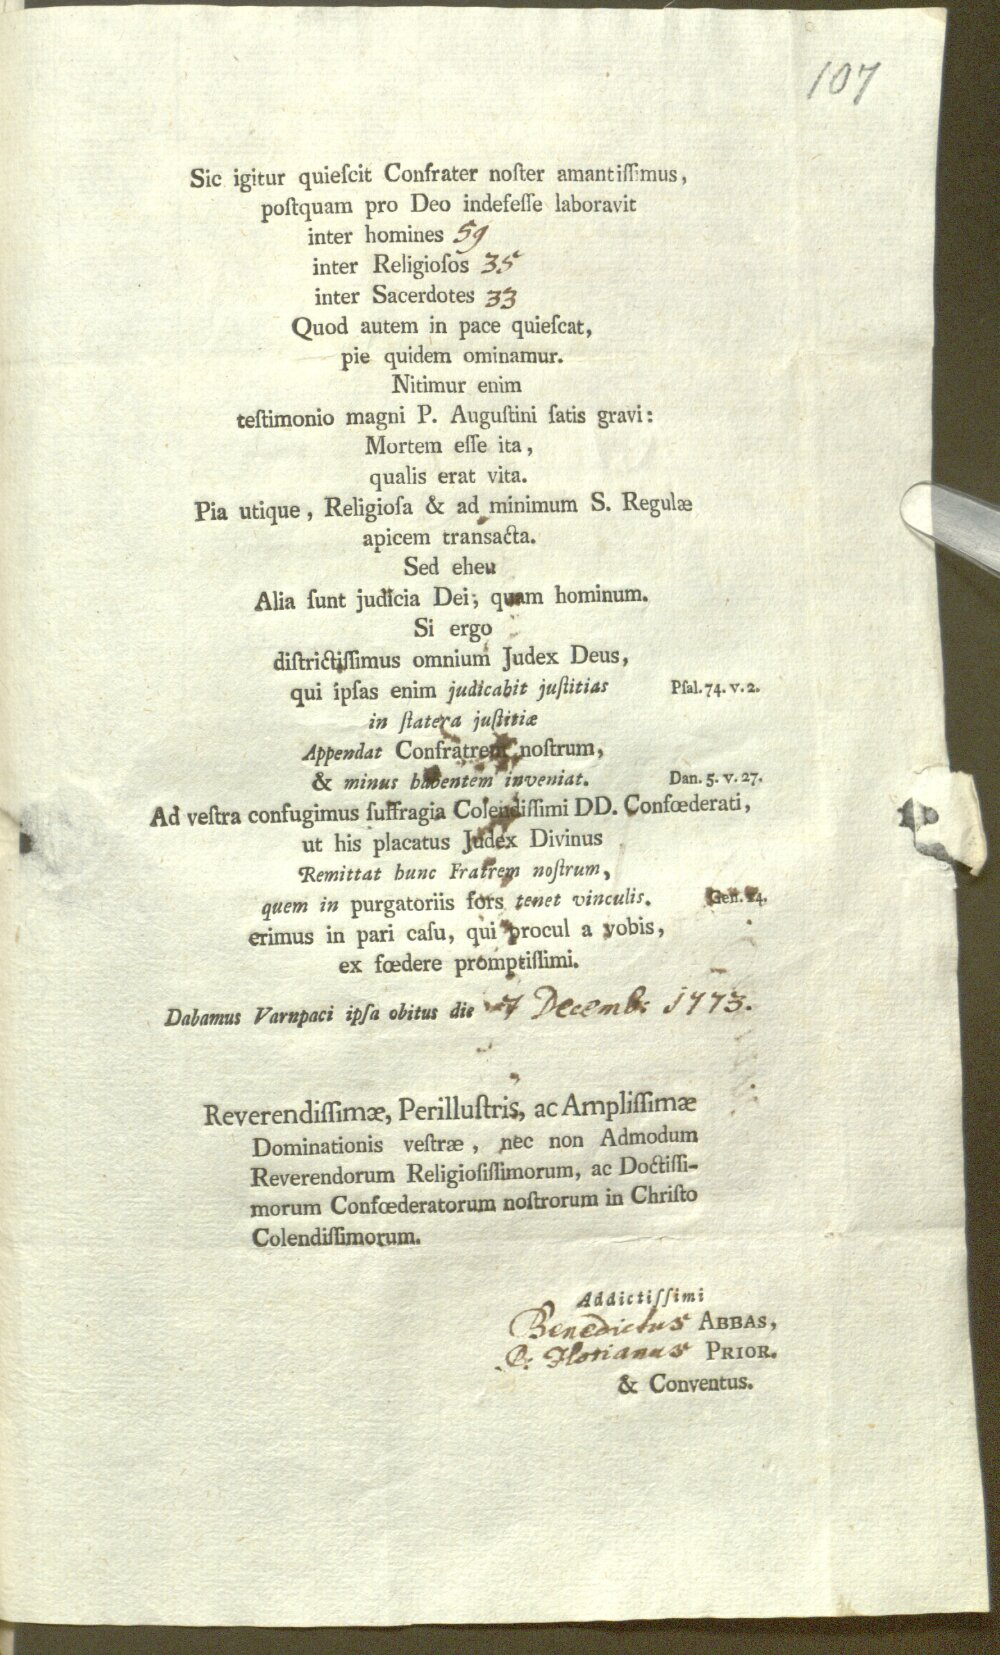 107
Sic igitur quieſcit Confrater noſter amantiſſimus,
poſtquam pro Deo indefeſſe laboravit
inter homines 59
inter Religioſos 35
inter Sacerdotes 33
Quod autem in pace quieſcat,
pie quidem ominamur.
Nitimur enim
teſtimonio magni P. Auguſtini ſatis gravi:
Mortem eſſe ita,
qualis erat vita.
Pia utique, Religioſa & ad minimum S. Regulæ
apicem transacta.
Sed eheu
Alia ſunt judicia Dei, quam hominum.
Si ergo
diſtrictiſſimus omnium Judex Deus,
qui ipſas enim judicabit juſtitias Pſal. 74. v. 2.
in ſtatera juſtitiæ
Appendat Confratrem noſtrum,
& minus habentem inveniat. Dan. 5. v. 27.
Ad veſtra confugimus ſuffragia Colendiſſimi DD. Confœderati,
ut his placatus Judex Divinus
Remittat hunc Fratrem noſtrum,
quem in purgatoriis fors tenet vinculis. Gen.
erimus in pari caſu, qui procul a vobis,
ex fœdere promptiſſimi.
Dabamus Varnpaci ipſa obitus die 7 Decemb: 1773.
Reverendiſſimæ, Perilluſtris, ac Ampliſſimæ
Dominationis veſtræ, nec non Admodum
Reverendorum Religioſiſſimorum, ac Doctiſſi-
morum Confœderatorum noſtrorum in Chriſto
Colendiſſimorum.
Addictiſſimi
Benedictus ABBAS,
P: Florianus PRIOR.
& Conventus.